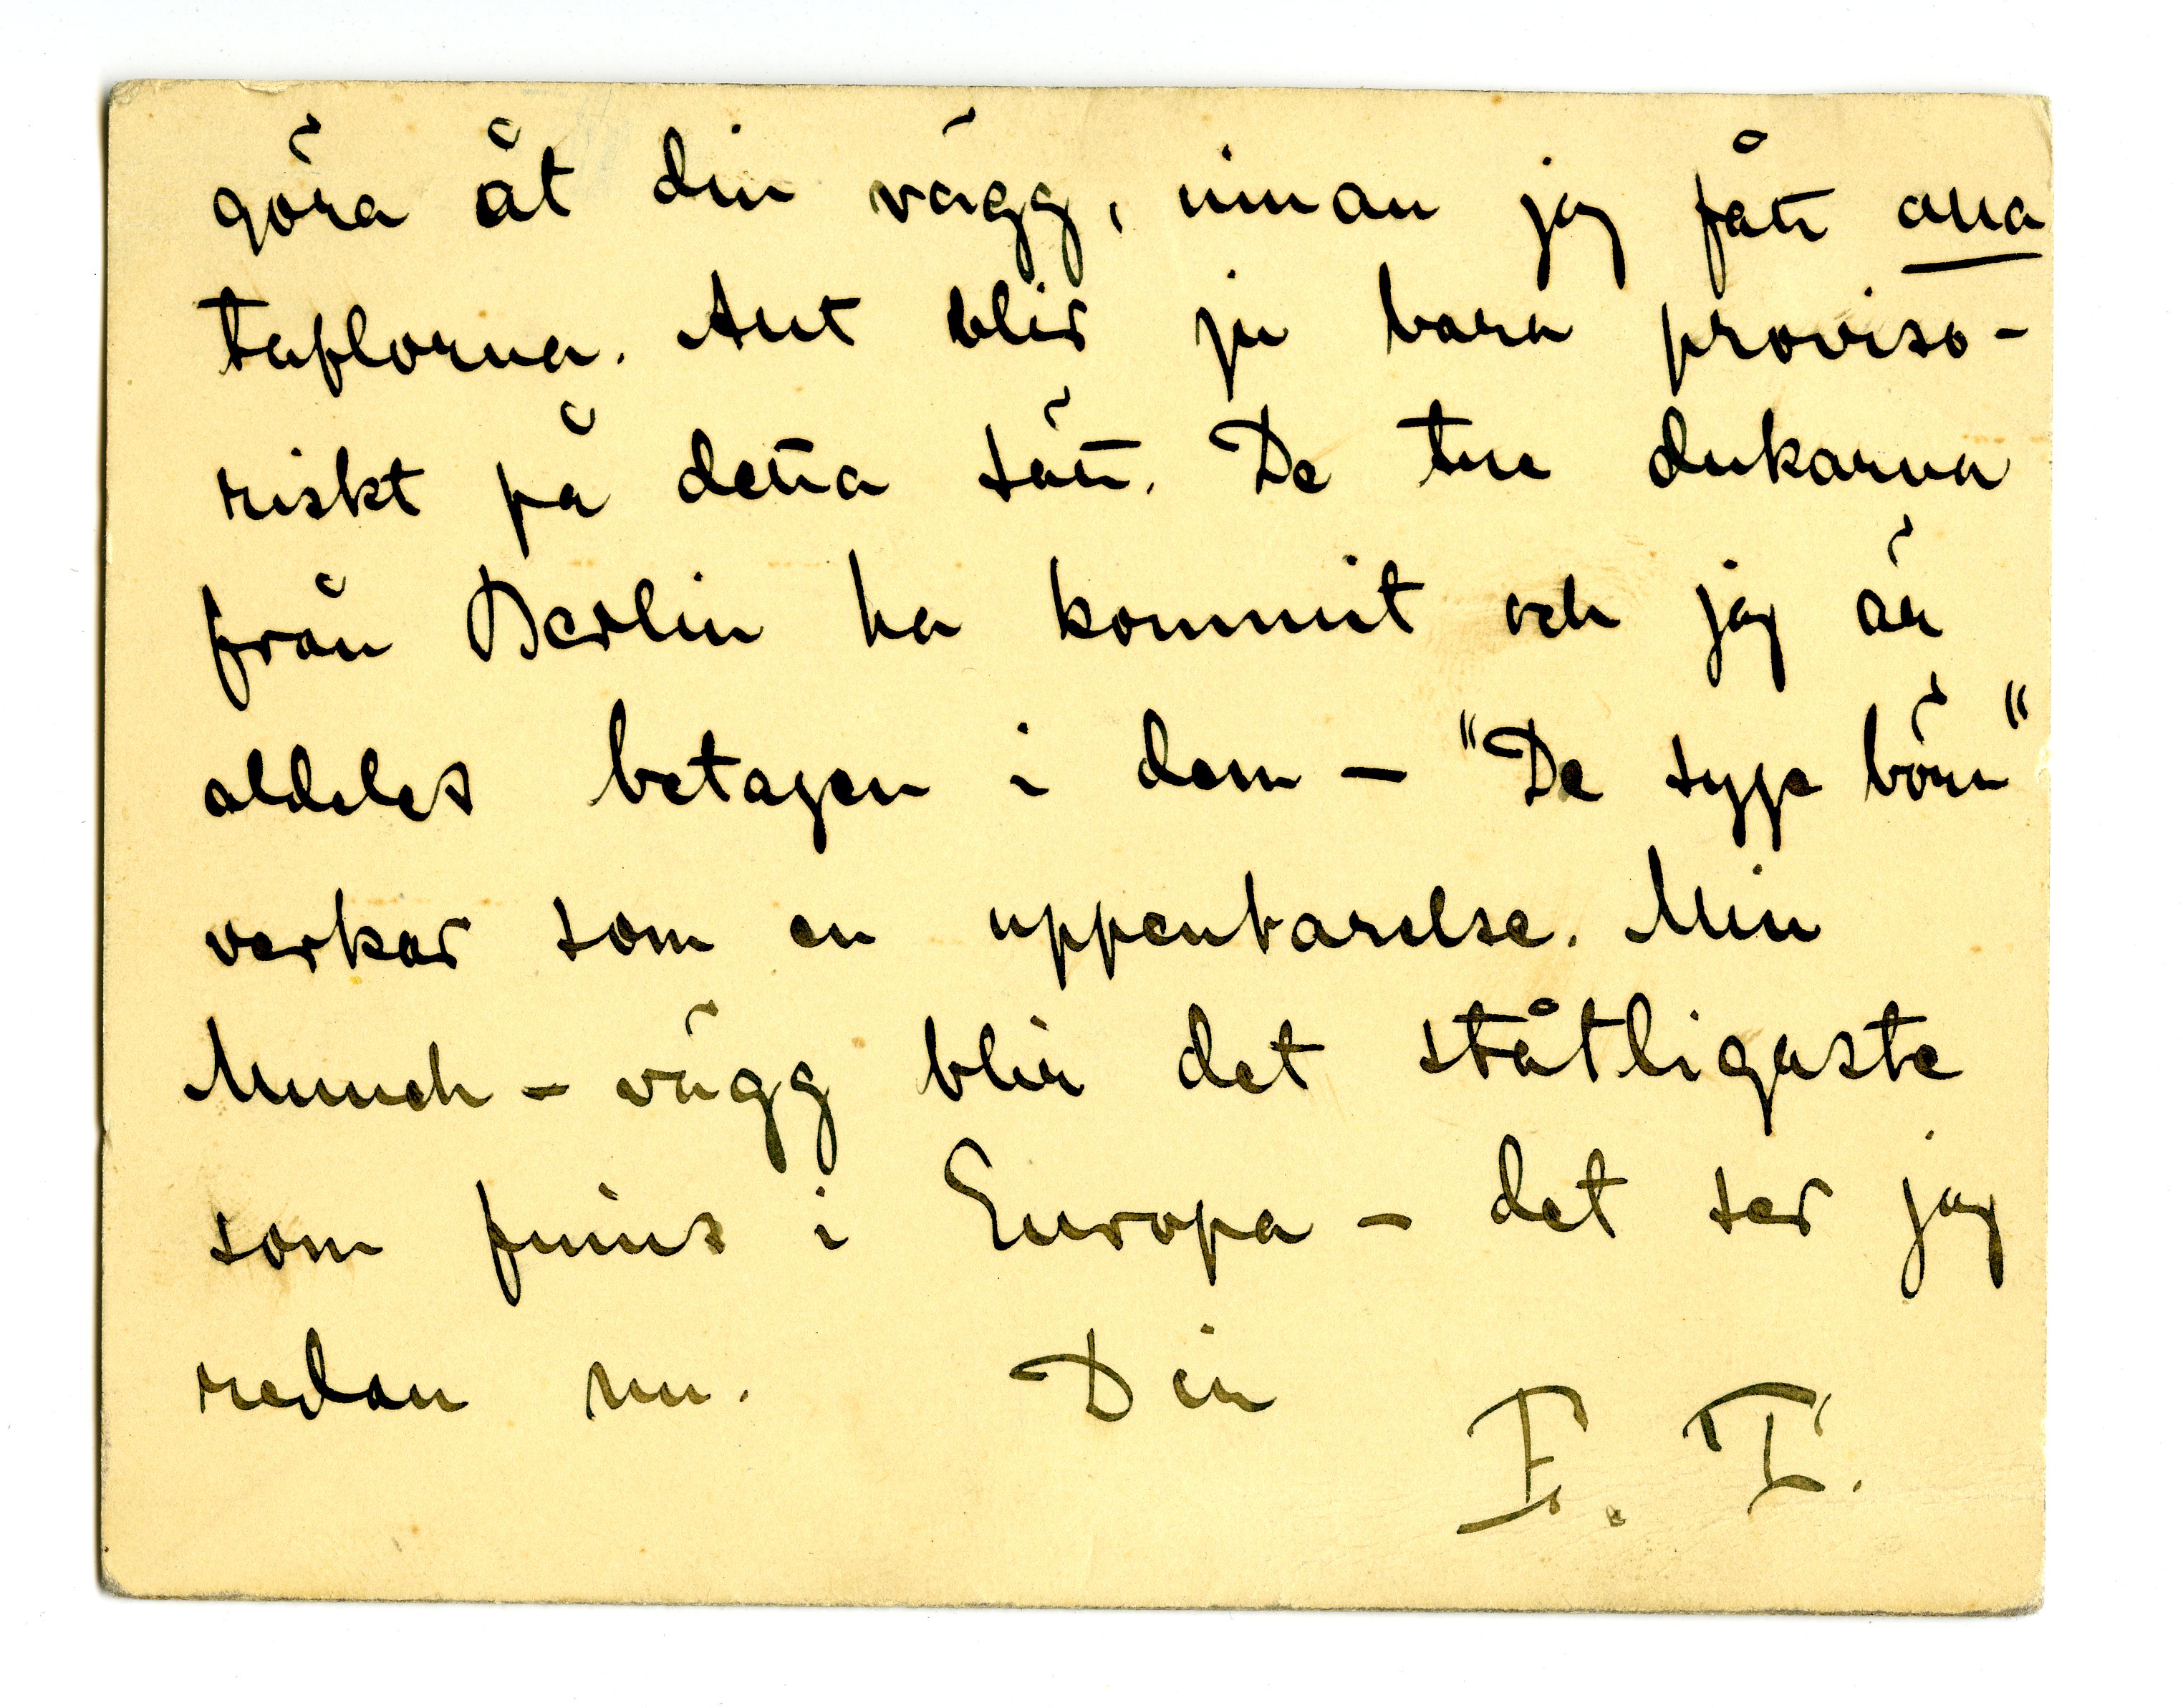 göra åt din vägg, innan jag fått alla
taflorna. Allt blir ju bara proviso-
riskt på detta sätt. De tre dukarna
från Berlin ha kommit och jag är
aldeles betagen i dem – "De syge börn"
verkar som en uppenbarelse. Min
Munch-vägg blir det ståtligaste
som finns i Europa – det ser jag
redan nu. Din
E. T.